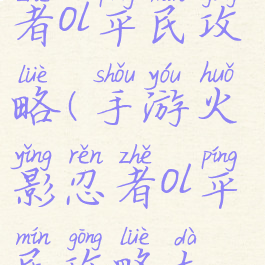 者ol平民攻
lüè shǒu yóu huǒ
略(手游火
yǐng rěn zhě píng
影忍者ol平
mín gōng lüè dà